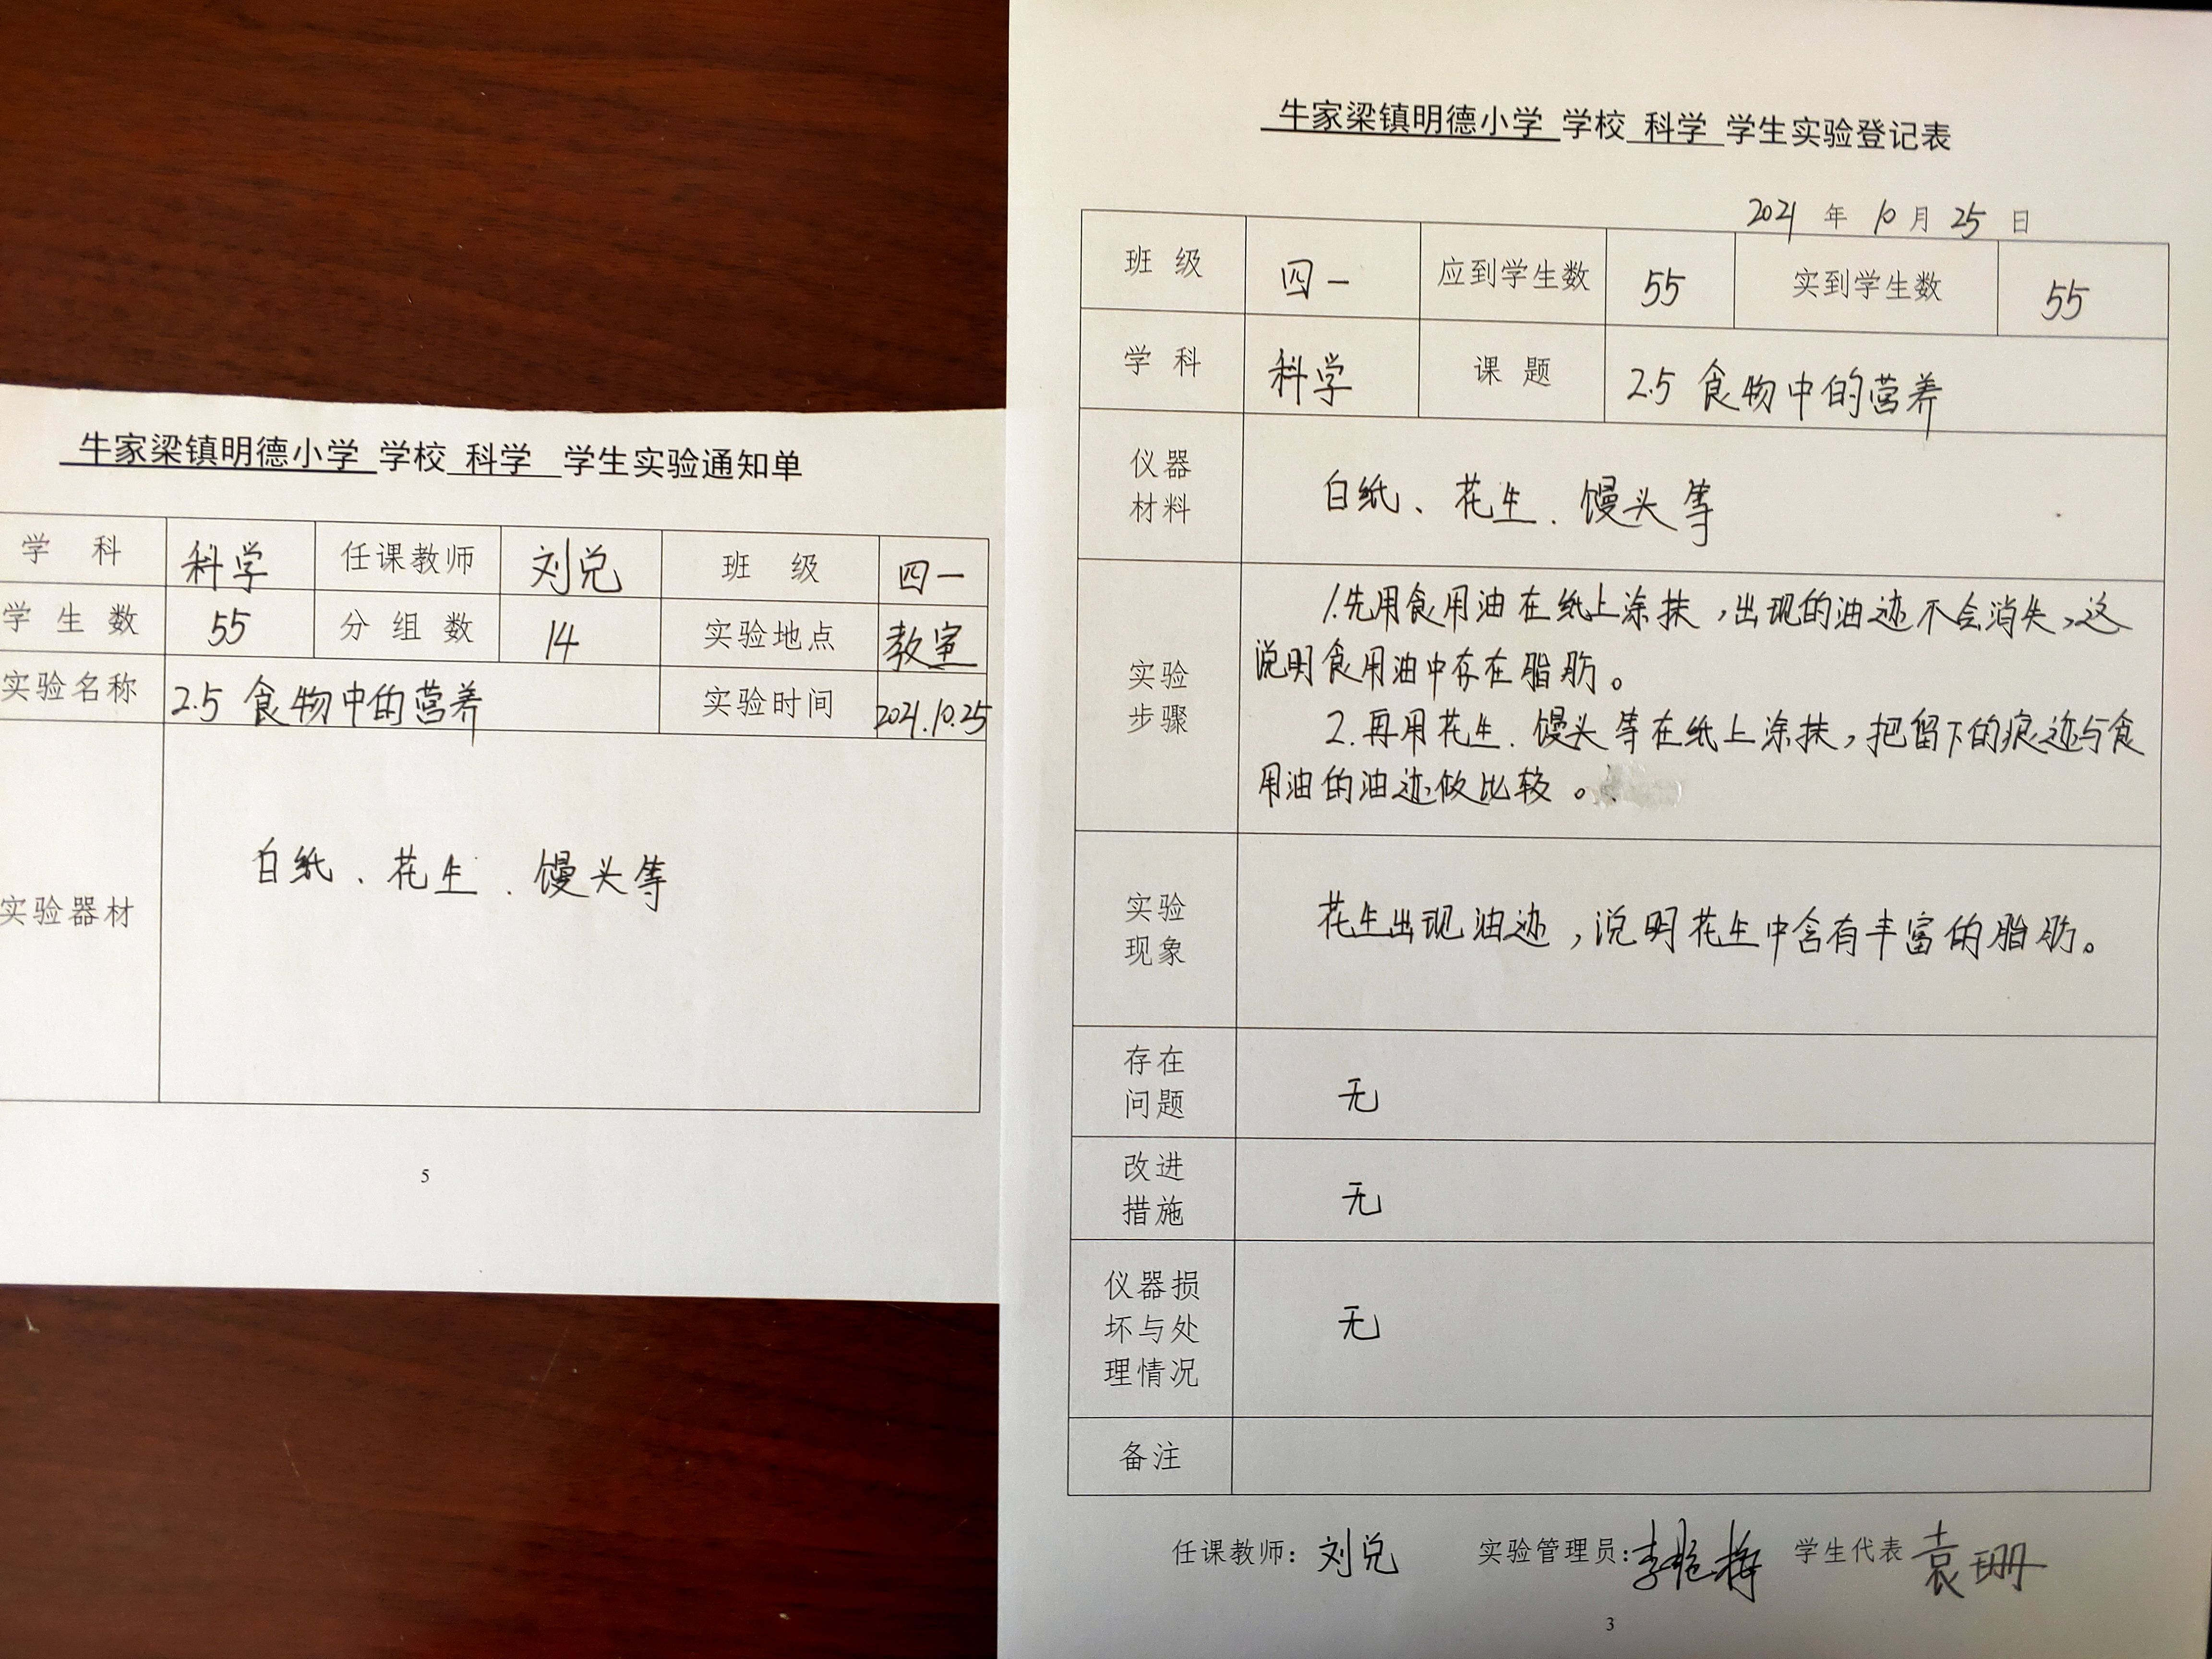 牛家梁镇明德小学 学校 科学 学生实验通知单
学 科 科学 任课教师 刘兑 班 级 四一
学 生 数 55 分 组 数 14 实验地点 教室
实验名称 2.5 食物中的营养 实验时间 2021.10.25
实验器材 白纸、花生、馒头等
5
牛家梁镇明德小学 学校 科学 学生实验登记表
2021 年 10 月 25 日
班 级 四一 应到学生数 55 实到学生数 55
学 科 科学 课 题 2.5 食物中的营养
仪器
材料
白纸、花生、馒头等
实验
步骤
1.先用食用油在纸上涂抹,出现的油迹不会消失,这
说明食用油中存在脂肪。
2.再用花生、馒头等在纸上涂抹,把留下的痕迹与食
用油的油迹做比较。
实验
现象
花生出现油迹,说明花生中含有丰富的脂肪。
存在
问题
无
改进
措施
无
仪器损
坏与处
理情况
无
备注
任课教师: 刘兑 实验管理员: 李艳梅 学生代表 袁珊
3